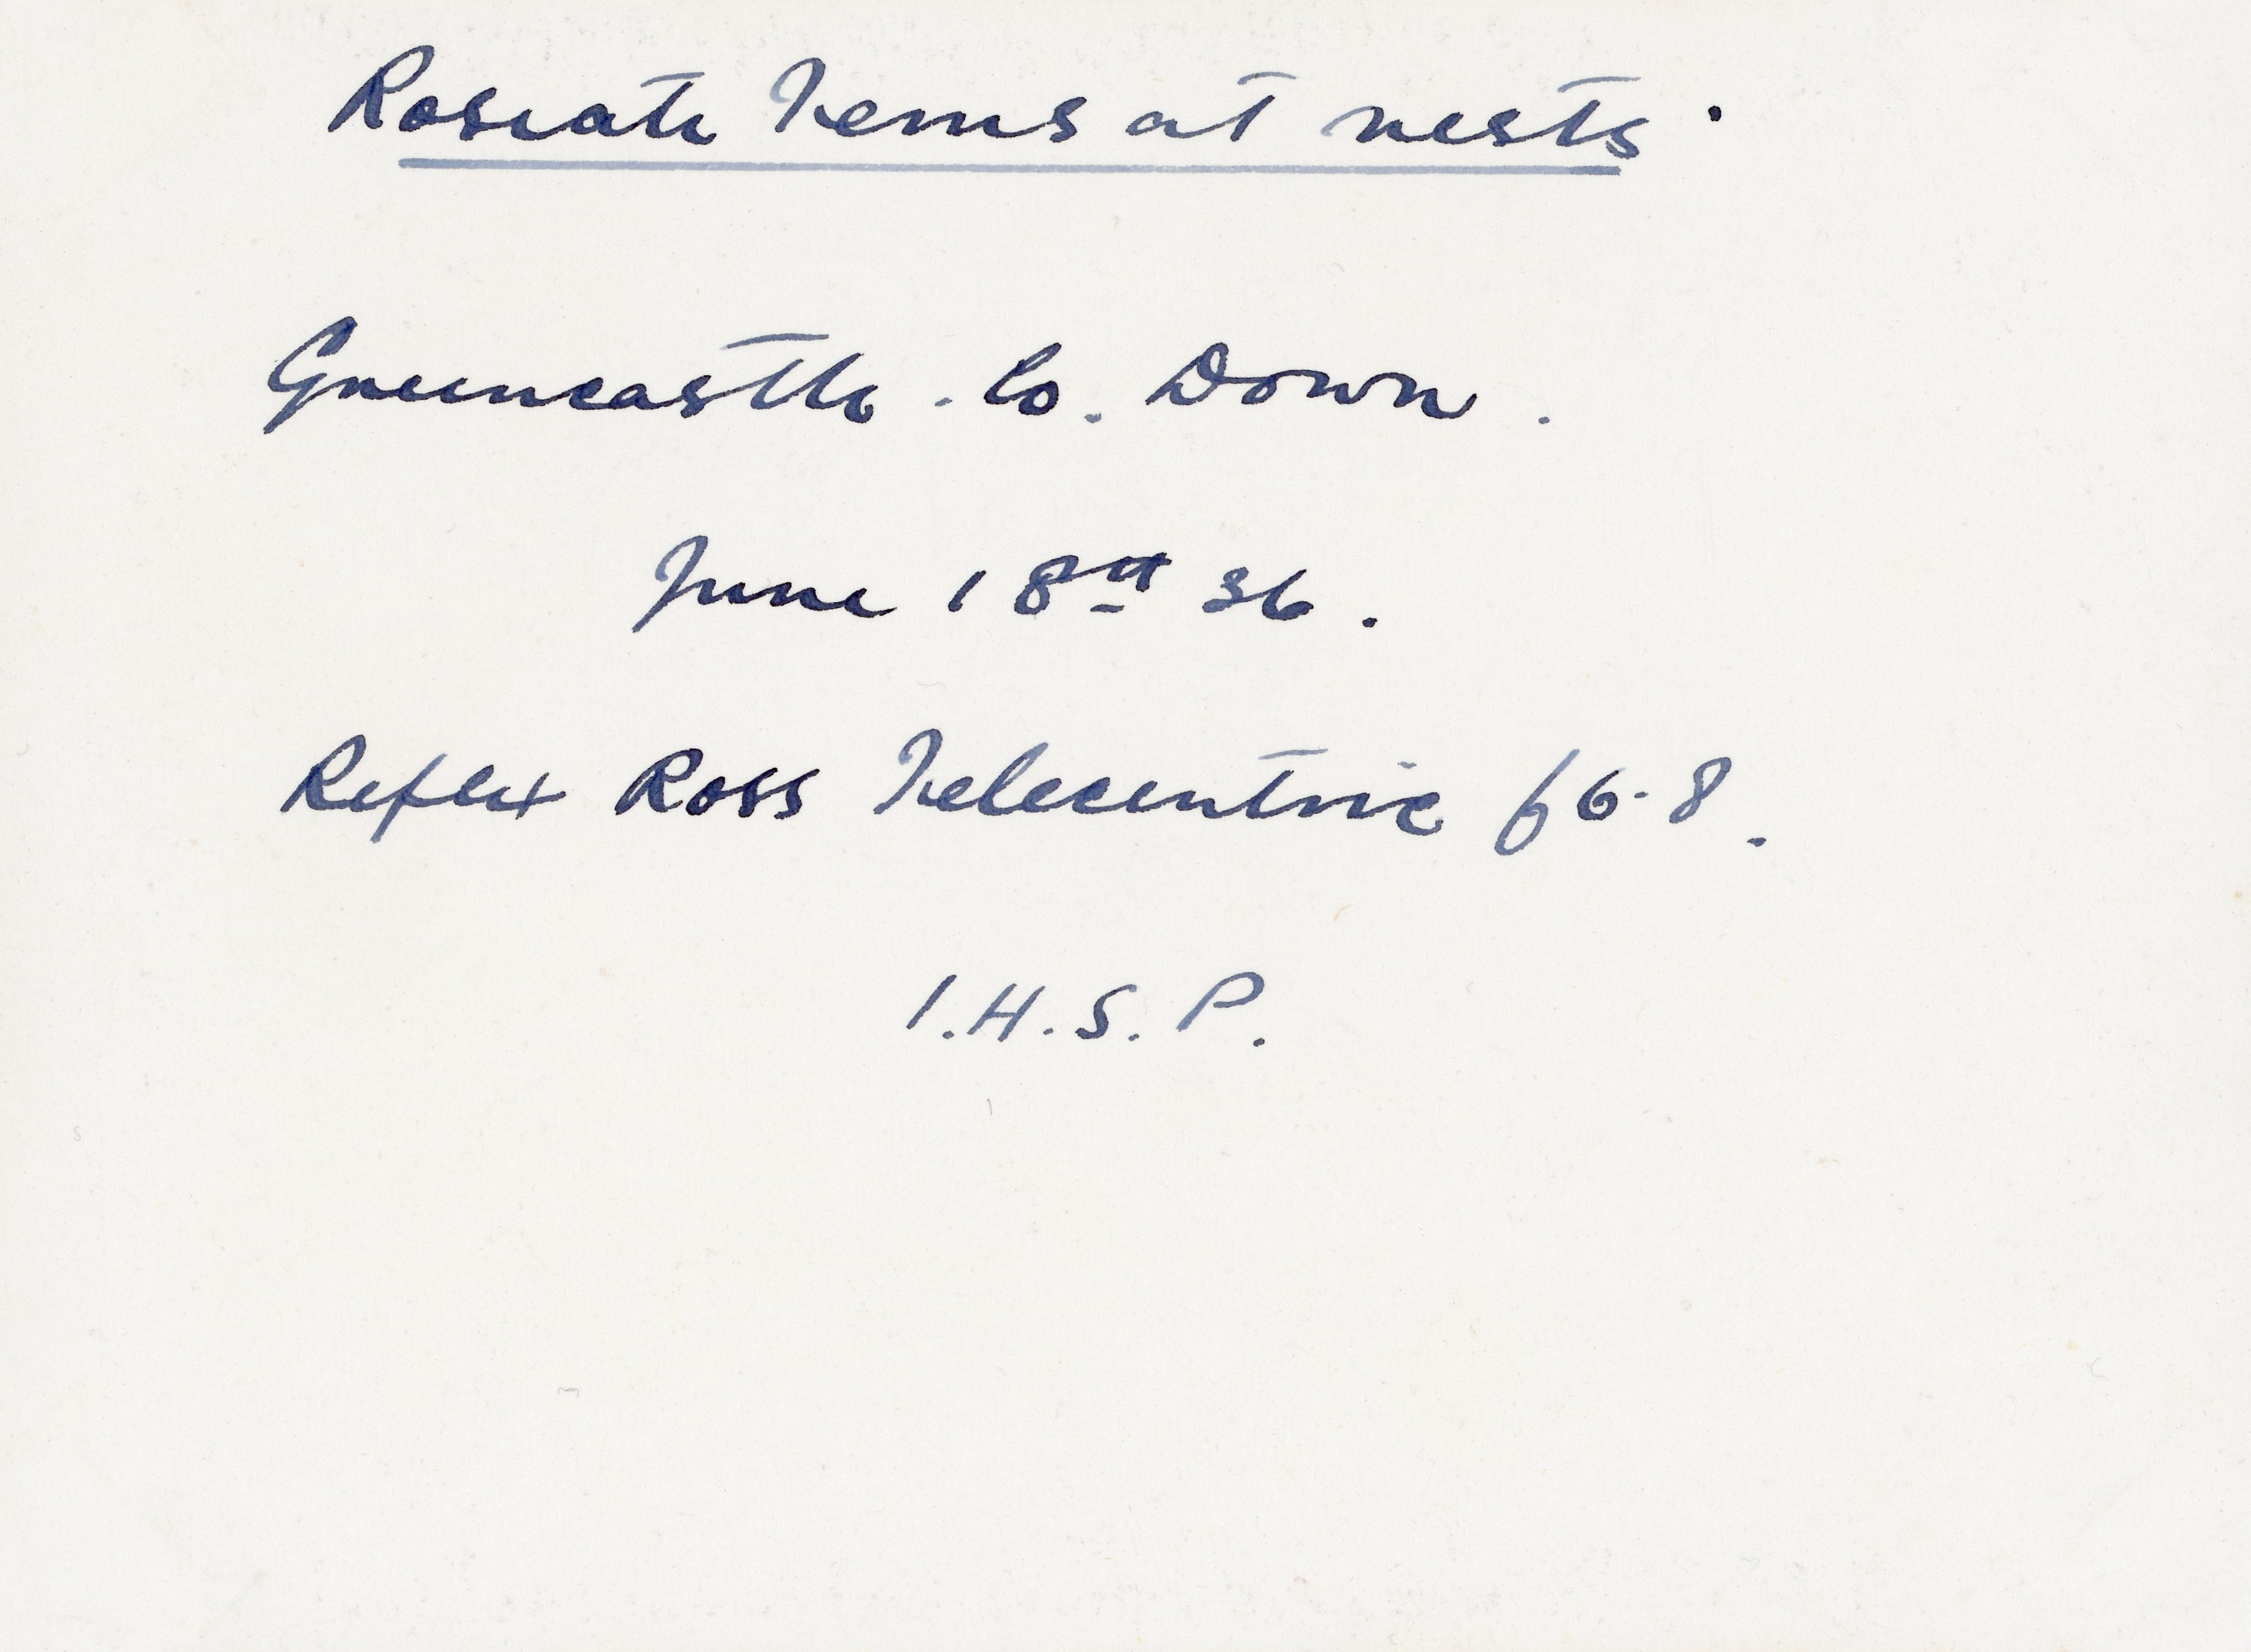 Roseate Terns at nests.
Greencastle. Co. Down.
June 18th 36.
Reflex Ross Telecentric f6.8.
I.H.S.P.